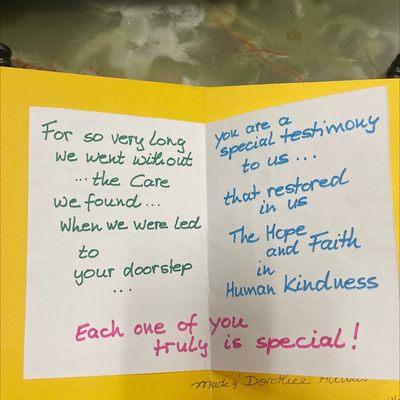 For so very long
we went without
... the Care
we found ...
when we were led
to
your doorstep
...
you are a
special testimony
to us ...
that restored
in us
The Hope
and Faith
in
Human Kindness
Each one of you
truly is special!
Mark & Dorothee